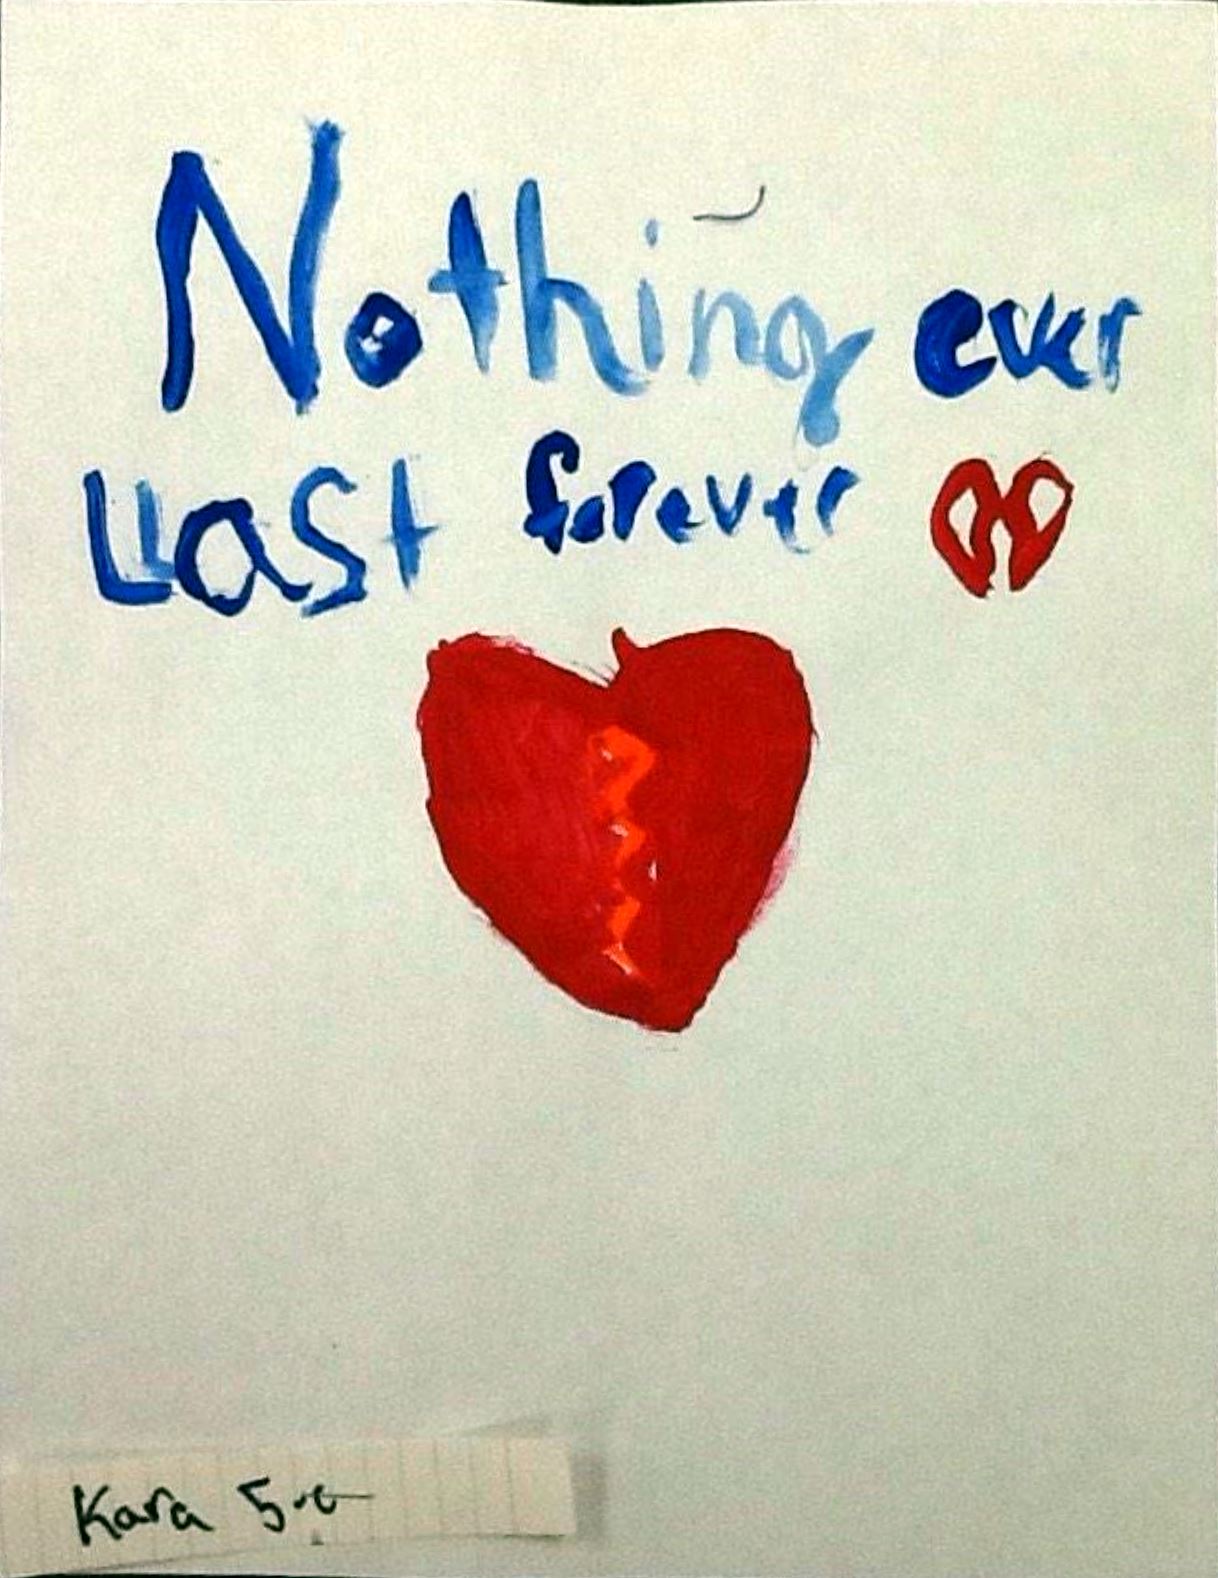 Nothing ever
Last forever
Kara